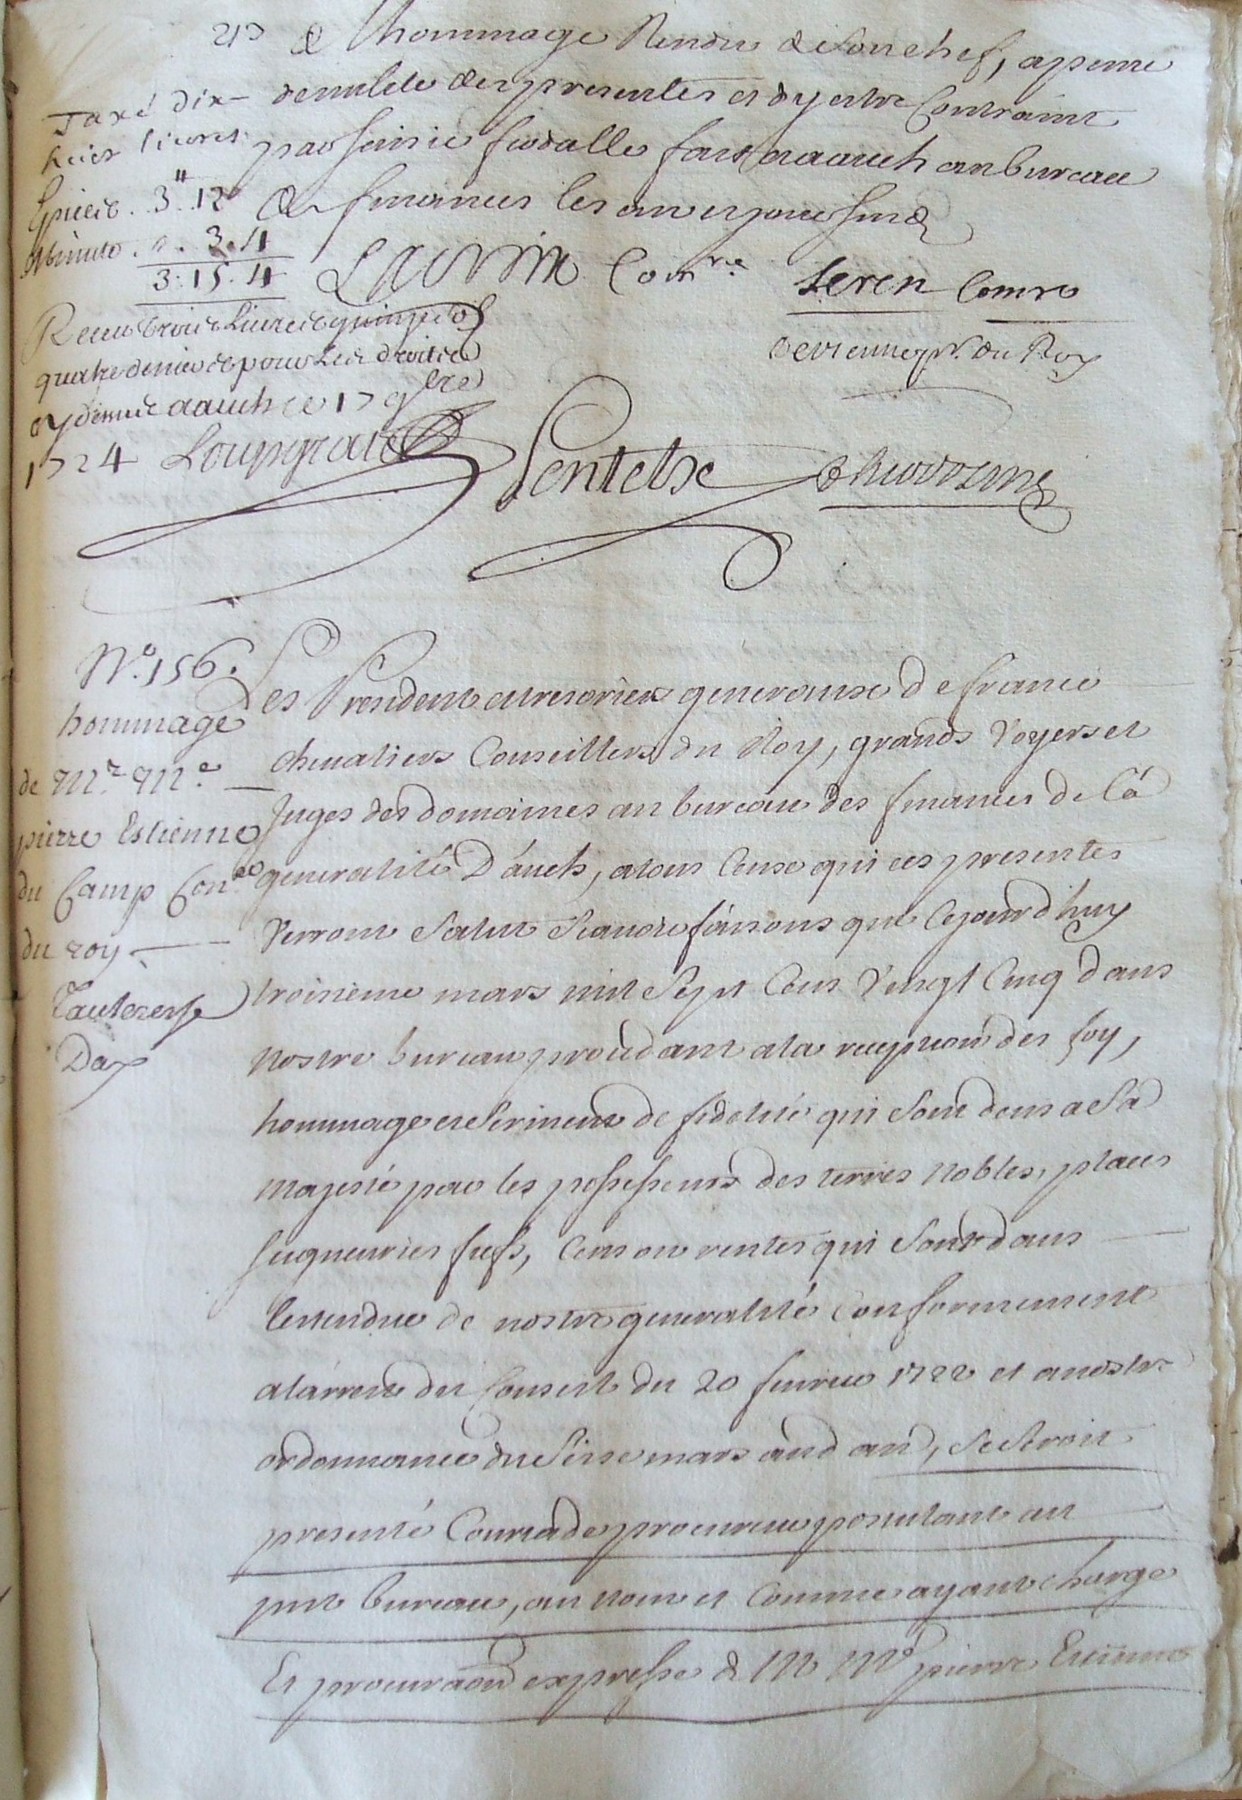 de lhommage Rendu de son chef, a peine
de nullité des presentes et dy estre Contraint
par saisie feodalle fait a auch au bureau
des finances les an et jour susd
Taxé dix
huict livres
Epices . 3" 12
Minute . " . 3 . 4
3 . 15 . 4
Com.re Seren Comre
devienne pr. du Roy
Receu trois Livres quinze sols
quatre deniers pour Les droits
cy dessus a auch ce 17 9bre
1724
N.o 156.
hommage
de M.r M.e
pierre Estienne
du Camp Con.er
du roy
Dax
Les Presidents tresoriers generaux de france
chevaliers Conseillers du Roy, grands Voyers et
Juges des domaines au bureau des finances de La
generalité D'auch, a tous Ceux qui ces presentes
Verront Salut Scavoir faisons que Cejourd'huy
troisieme mars mil Sept Cens Vingt Cinq dans
nostre bureau procedant a la reception des foy,
hommage et Serment de fidelité qui Sont deus a Sa
Majesté par les possesseurs des terres nobles, places
seigneuries fiefs, Cens ou rentes qui Sont dans
lestendue de nostre generalité Conformement
a larrest du Conseil du 20 fevrier 1722 et a nostre
ordonnance du Seise mars aud an, Se Seroit
presenté Courtade procureur postulant au
pnt bureau, au nom et Comme ayant charge
Et procuraon expresse de M Me pierre Estienne